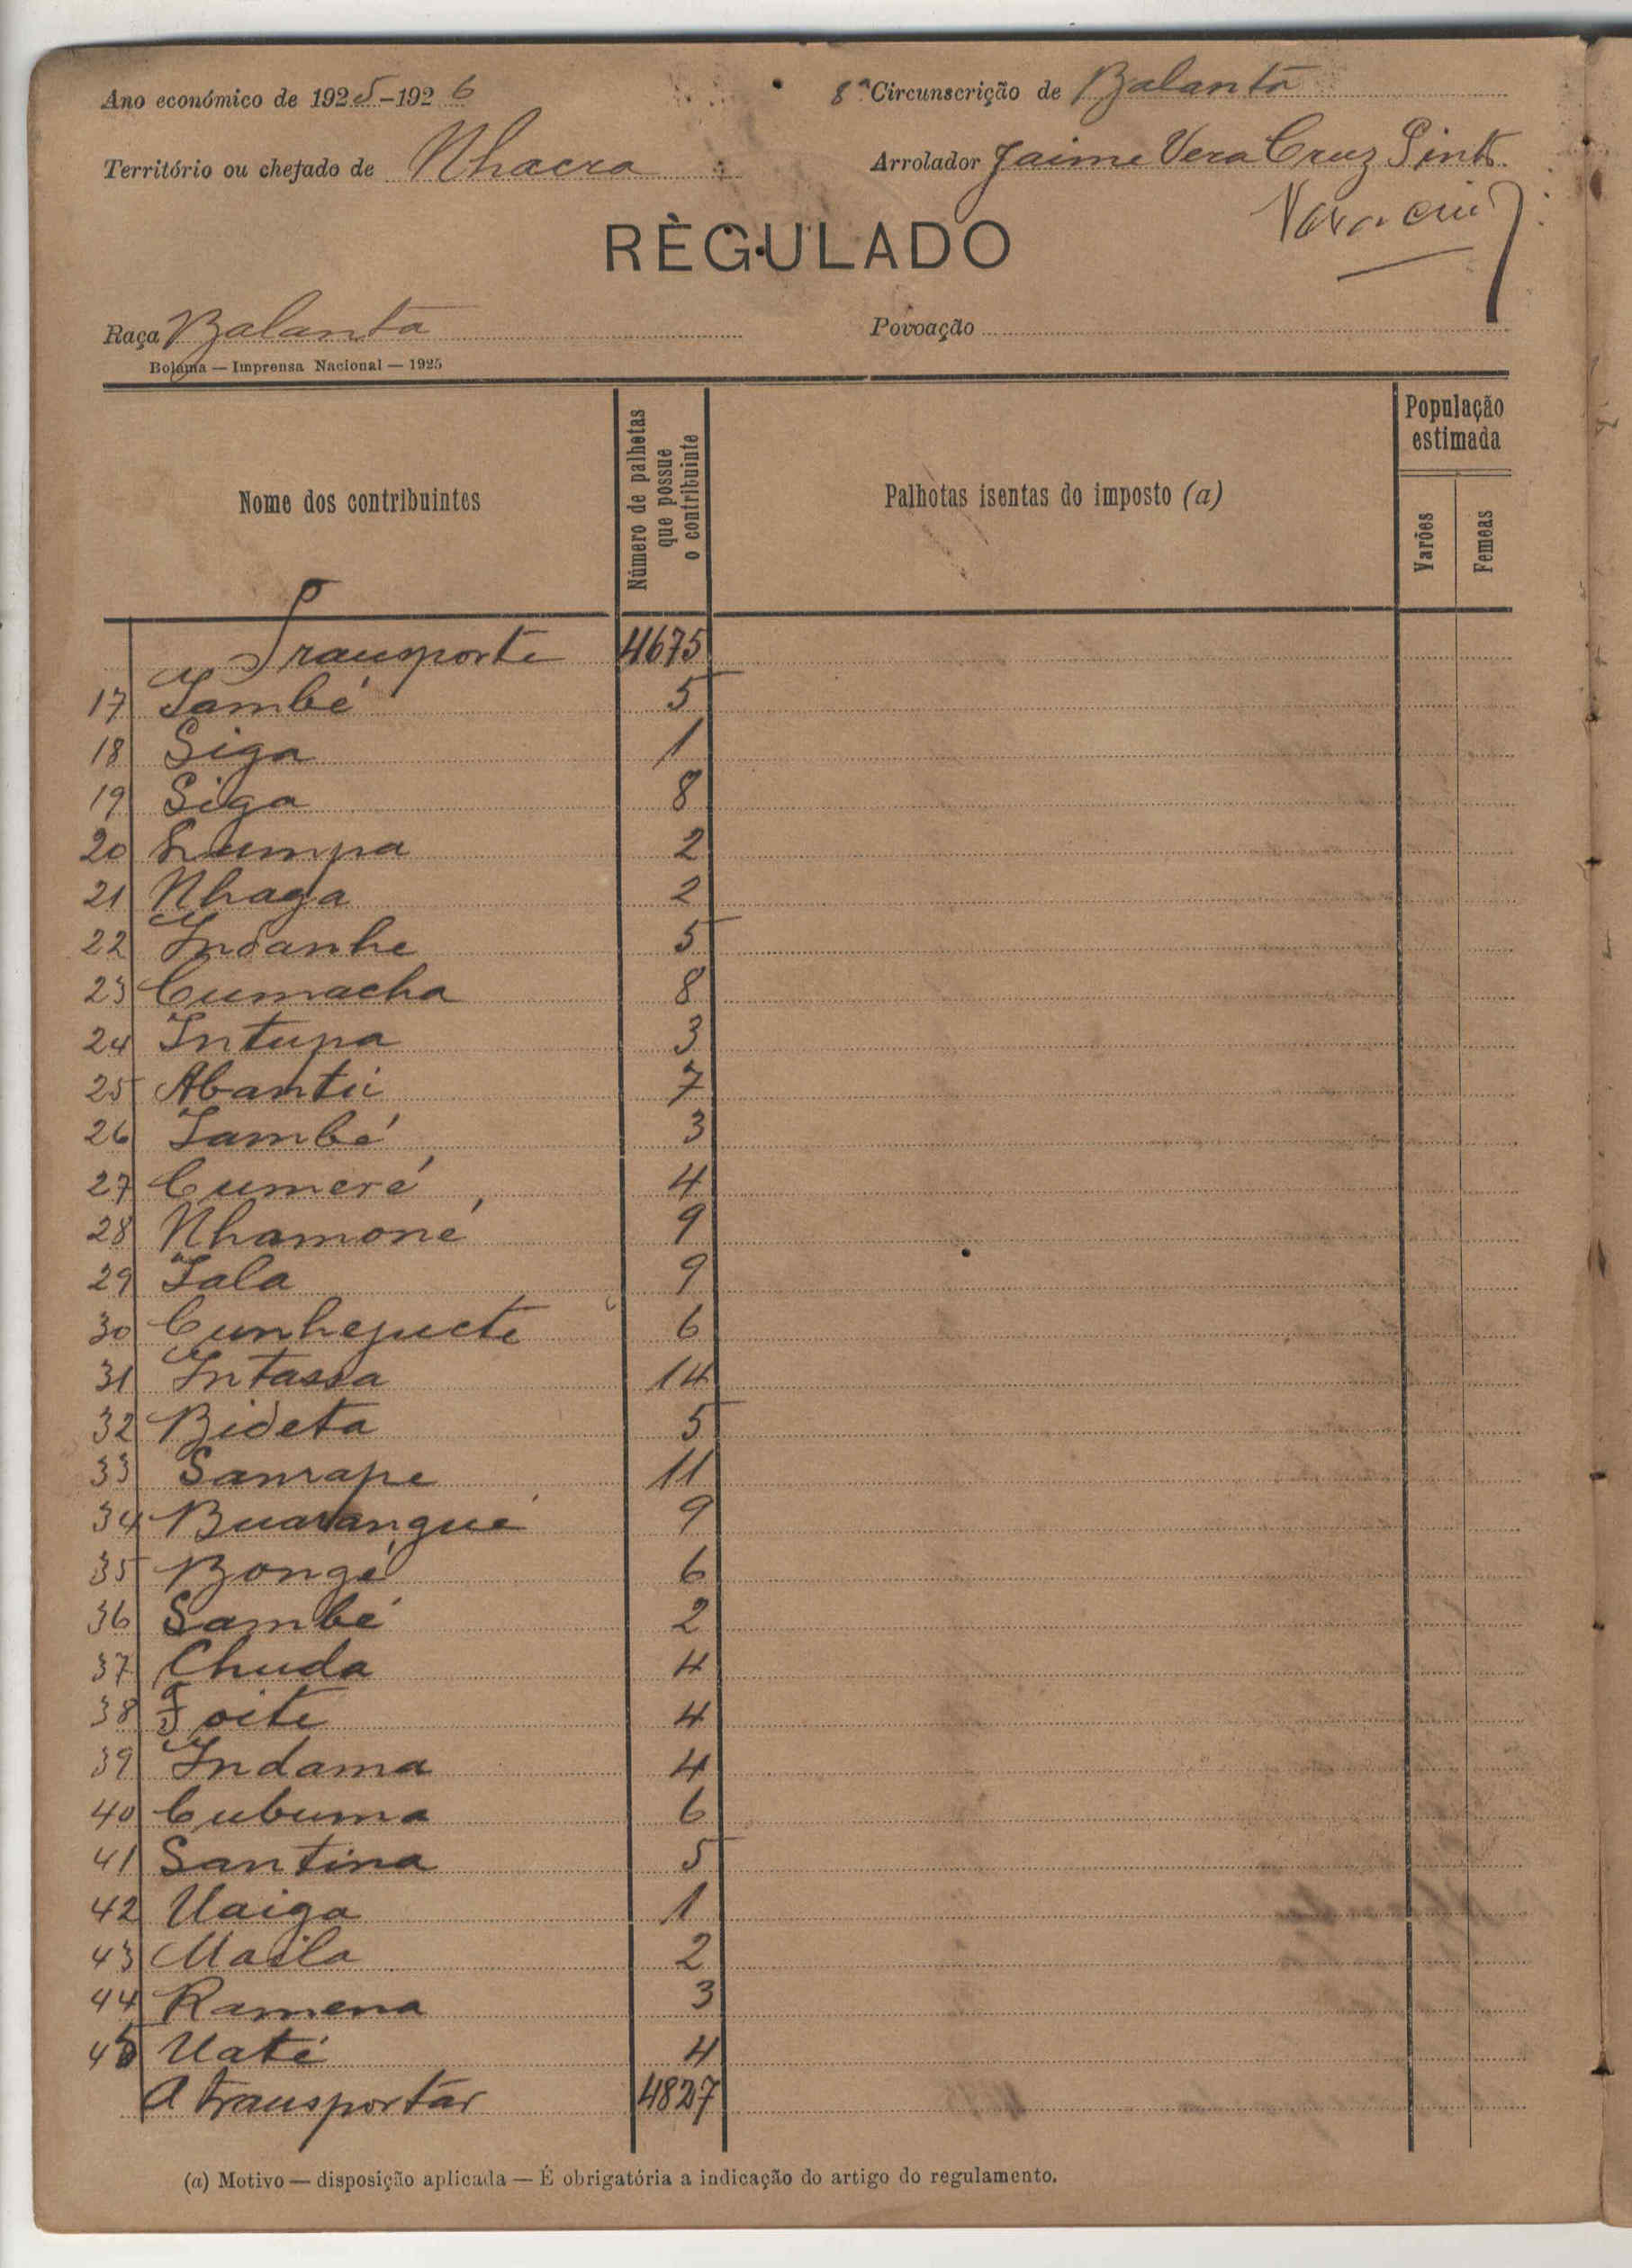 Ano económico de 1925-1926
8ª Circunscrição de Balanta
Território ou chefado de Nhacra
Arrolador Jaime Vera Cruz Pinto
RÈGULADO
Raça Balanta
Povoação
Bolama — Imprensa Nacional — 1925
Nome dos contribuintes
Número de palhotas que possue o contribuinte
Palhotas isentas do imposto (a)
População estimada
Varões
Femeas
Transporte 4675
17 Iambé 5
18 Siga 1
19 Siga 8
20 Lumpa 2
21 Nhaga 2
22 Indanhe 5
23 Cumacha 8
24 Intupa 3
25 Abantú 7
26 Iambé 3
27 Cumeré 4
28 Nhamoné 9
29 Iala 9
30 Cunhequete 6
31 Intassa 14
32 Bideta 5
33 Sanrape 11
34 Buarangué 9
35 Bongé 6
36 Sambé 2
37 Chuda 4
38 Foite 4
39 Indama 4
40 Cubuma 6
41 Santina 5
42 Uaiga 1
43 Masla 2
44 Ramena 3
45 Uaté 4
A transportar 4827
(a) Motivo — disposição aplicada — É obrigatória a indicação do artigo do regulamento.